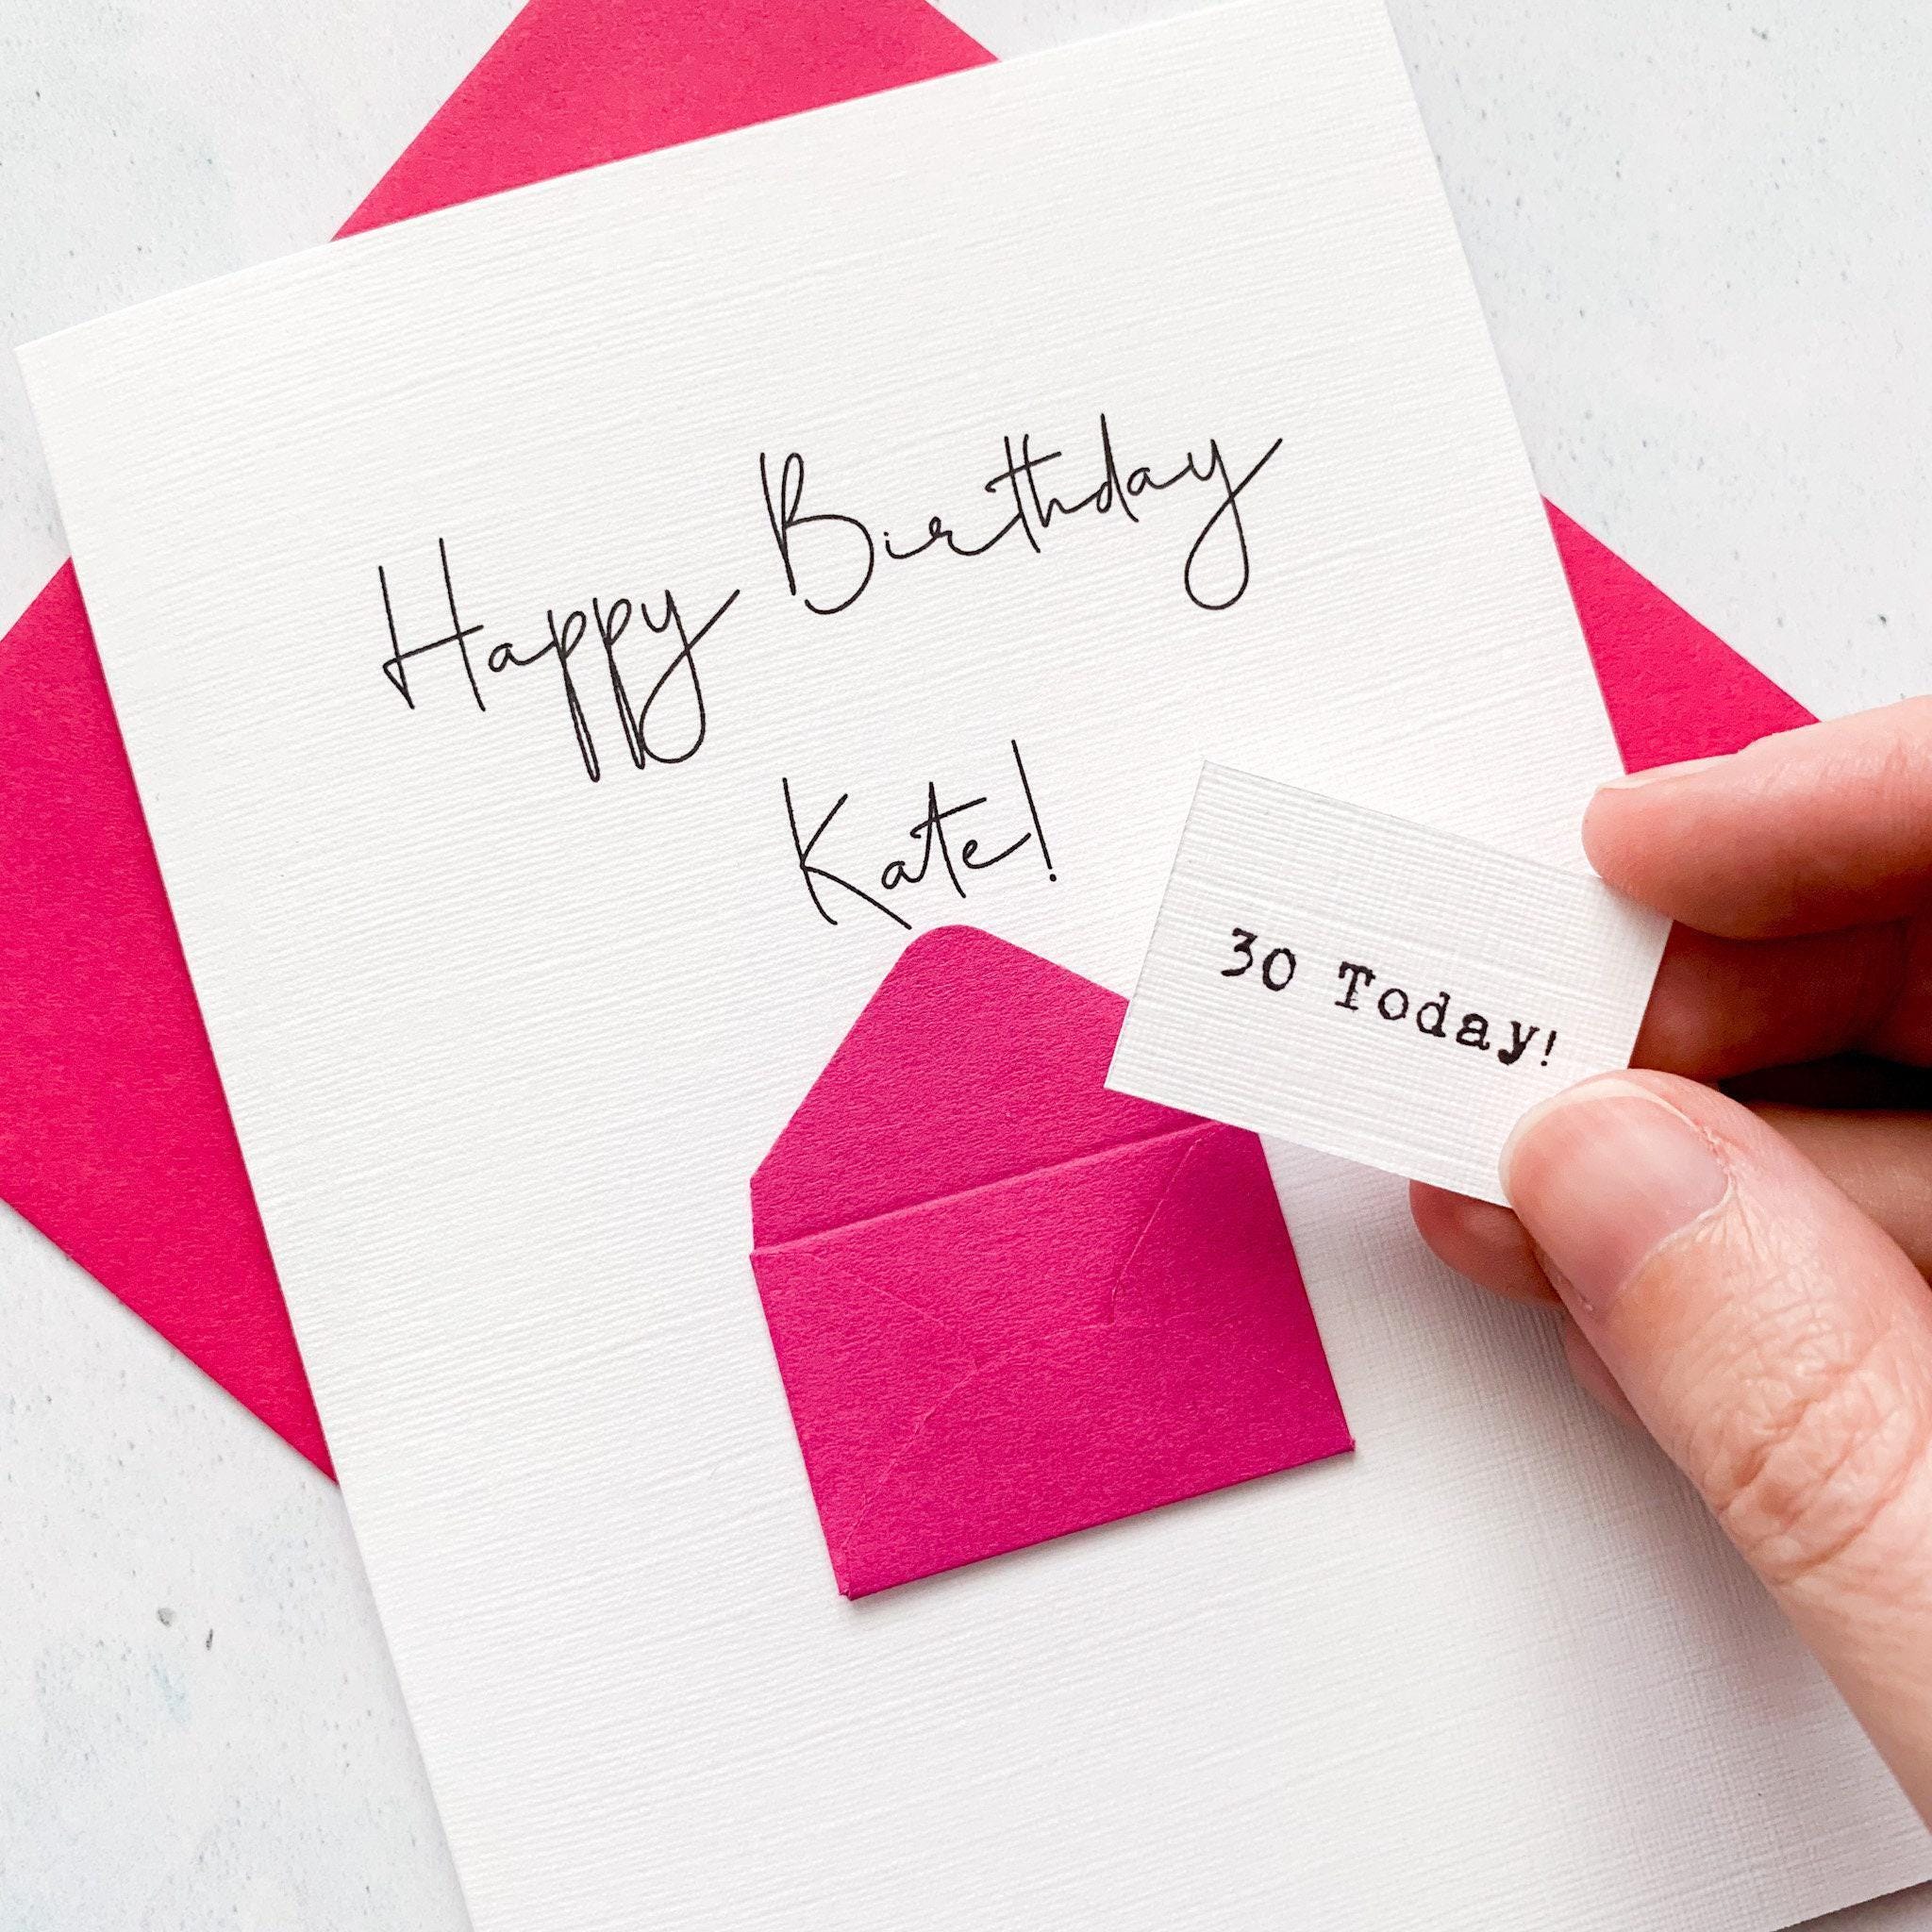 Happy Birthday
Kate!
30 Today!